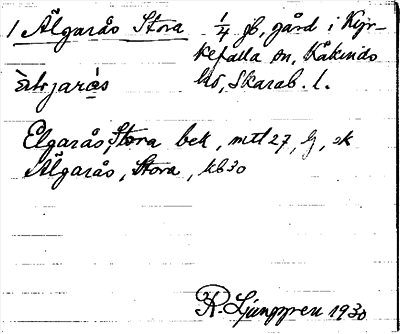 1 Älgarås Stora 1/4 jb, gård i Kyr-
kefalla sn, Kåkinds
hd, Skarab. l.
Elgarås, Stora bek, mtl 27, lj, sk
Älgarås, Stora, kb 30
R. Ljunggren 1930